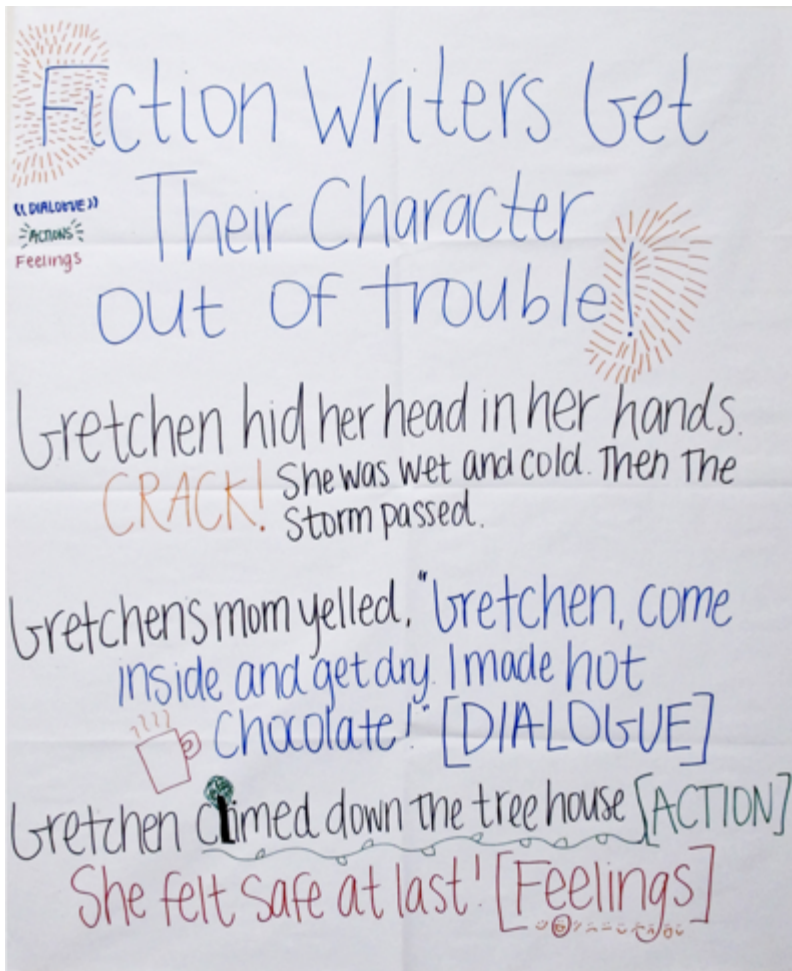 Fiction Writers Get
Their Character
out of trouble!
"DIALOGUE"
ACTIONS
Feelings
Gretchen hid her head in her hands.
CRACK! She was wet and cold. Then The
Storm passed.
Gretchens mom yelled, "Gretchen, come
inside and get dry. I made hot
Chocolate!" [DIALOGUE]
Gretchen climed down the tree house [ACTION]
She felt safe at last! [Feelings]